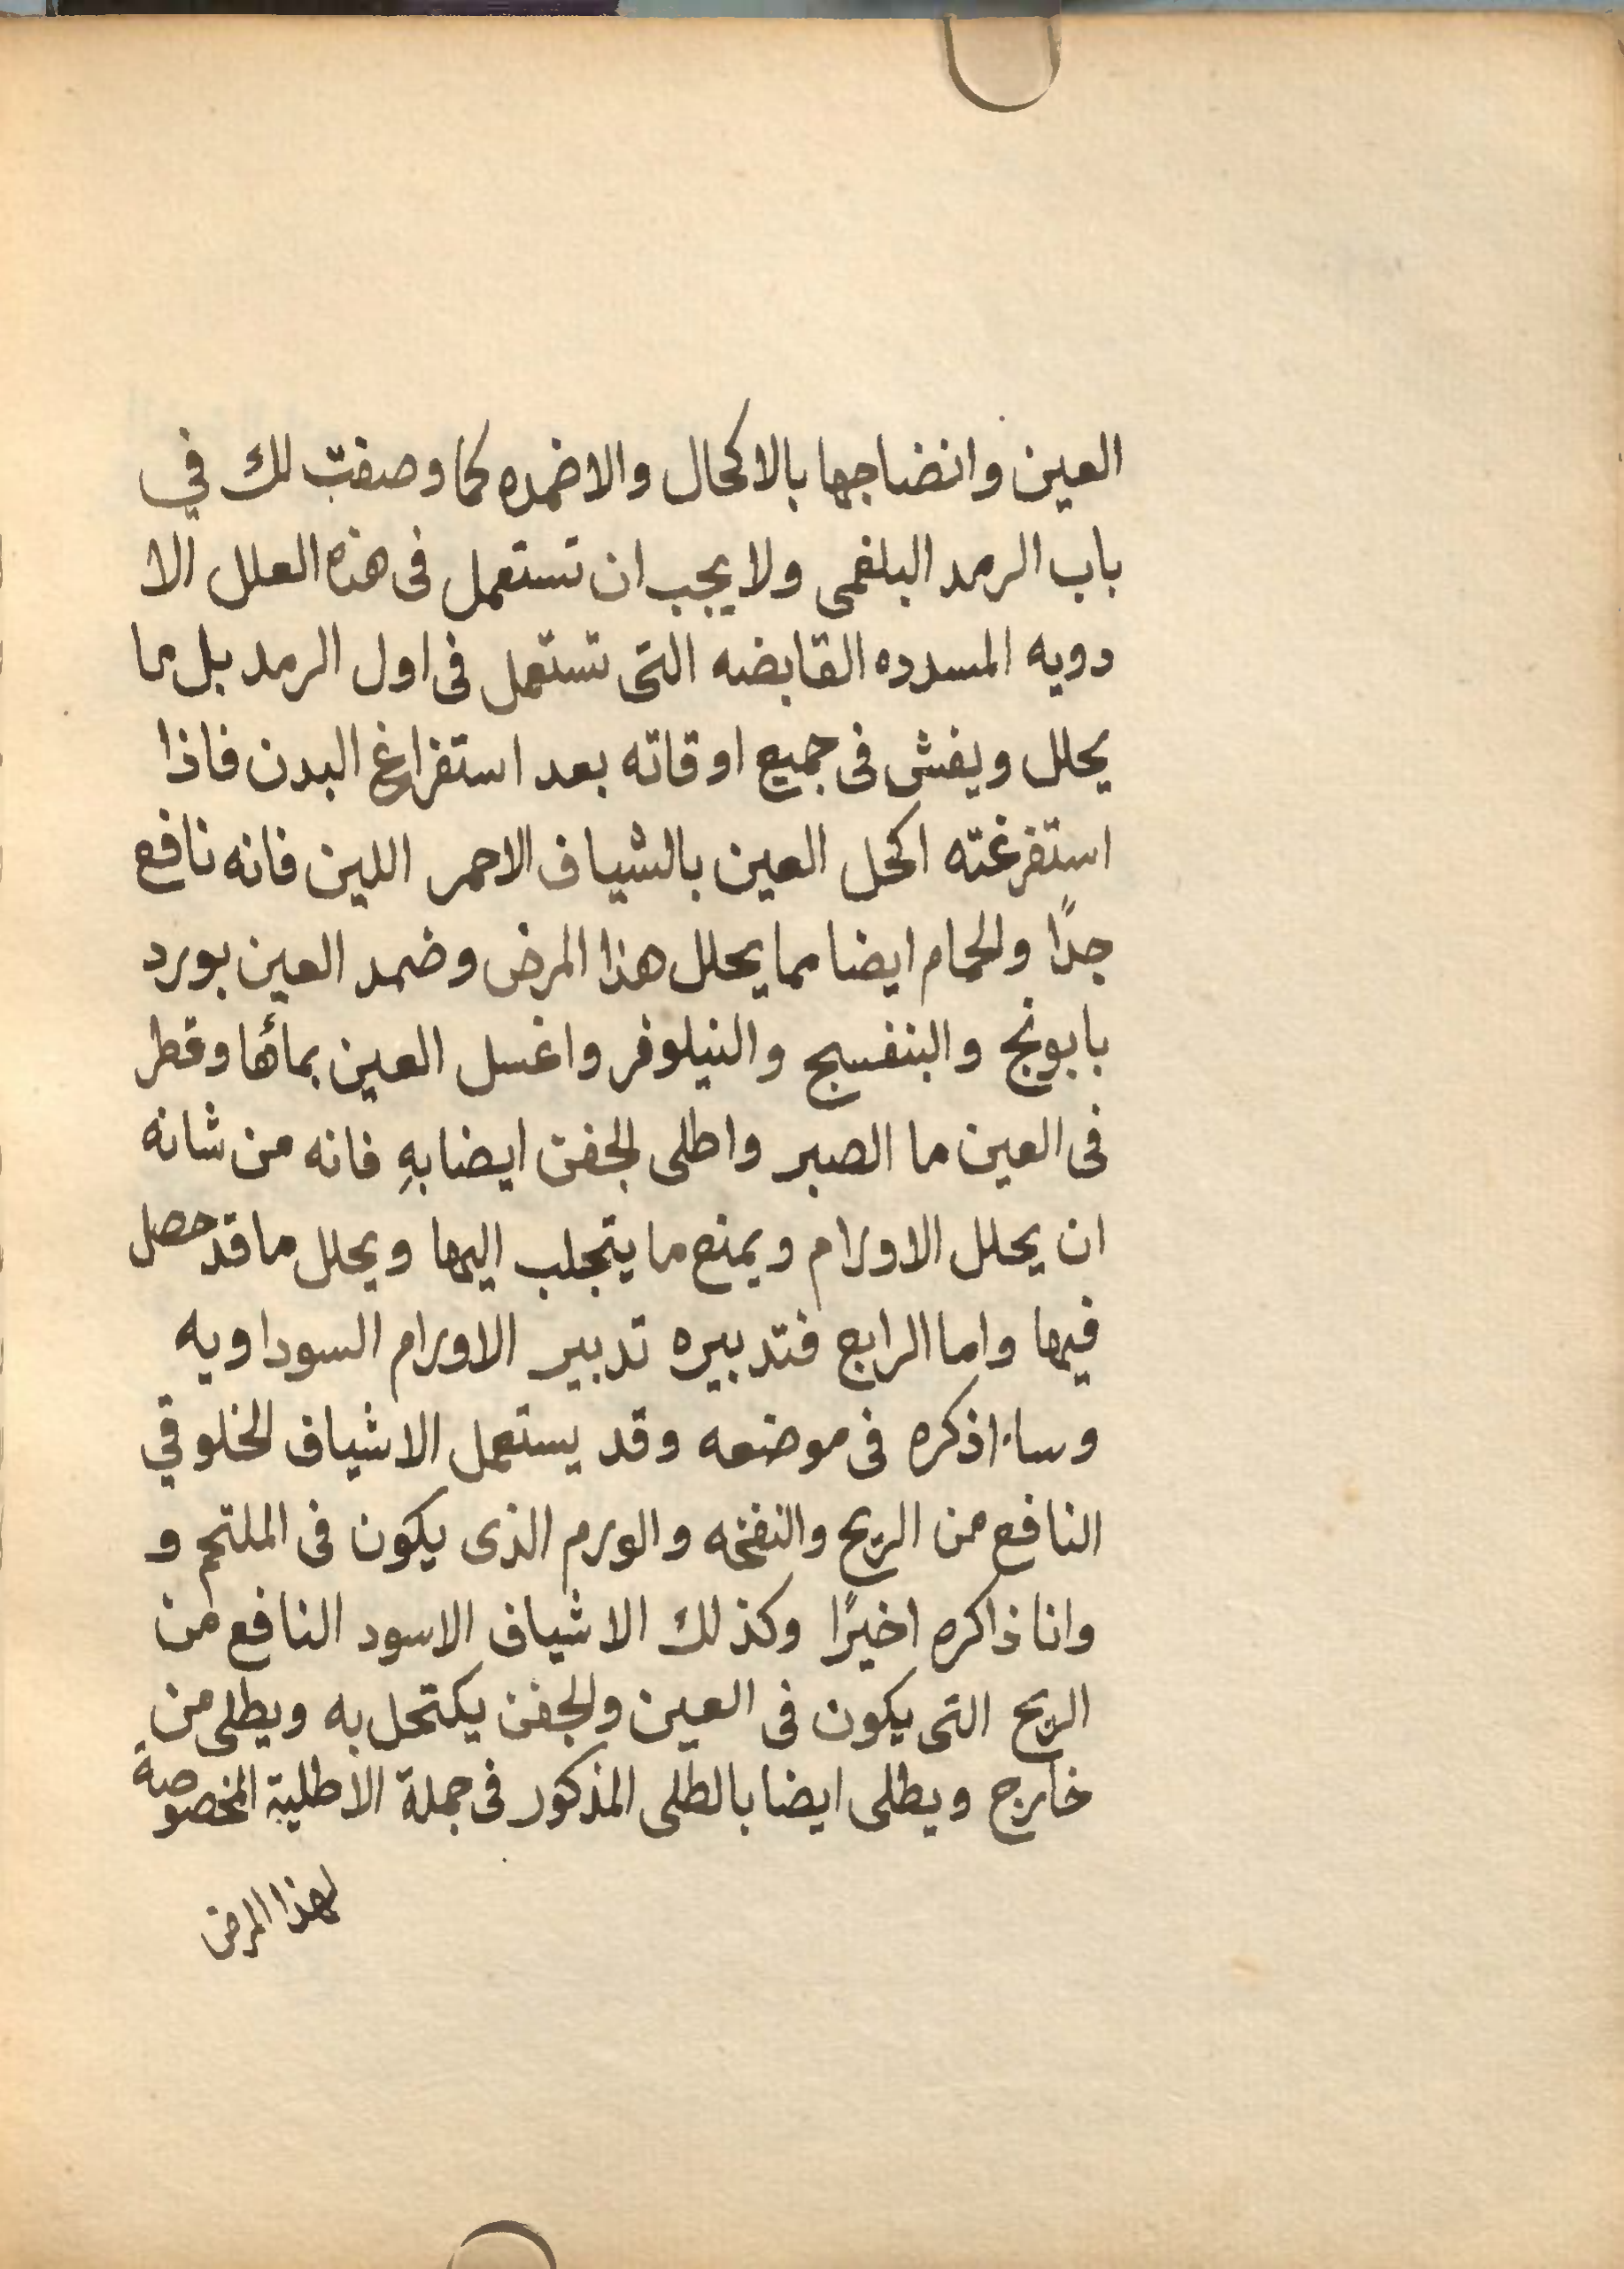 العين وانضاجها بالاكحال والاضمده كما وصفت لك في
باب الرمد البلغمى ولا يجب ان تستعمل فى هذه العلل الا
دويه المسدده القابضه التى تستعمل فى اول الرمد بل ما
يحلل ويفش فى جميع اوقاته بعد استفراغ البدن فاذا
استفرغته اكحل العين بالشياف الاحمر اللين فانه نافع
جدًا والحمام ايضا مما يحلل هذا المرض وضمد العين بورد
بابونج والبنفسج والنيلوفر واغسل العين بمائها وقطر
فى العين ما الصبر واطلى الجفن ايضا بهِ فانه من شانه
ان يحلل الاورام ويمنع ما يتجلب اليها ويحلل ما قد حصل
فيها واما الرابع فتدبيره تدبير الاورام السوداويه
وساذكره فى موضعه وقد يستعمل الاشياف الخلوقي
النافع من الريح والنفخه والورم الذى يكون فى الملتحم و
وانا ذاكره اخيرًا وكذلك الاشياف الاسود النافع من
الريح التى يكون فى العين والجفن يكتحل به ويطلى من
خارج ويطلى ايضا بالطلى المذكور فى جملة الاطلية المخصوصة
لهذا المرض